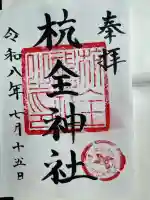 奉拝
杭全神社
令和八年七月十五日